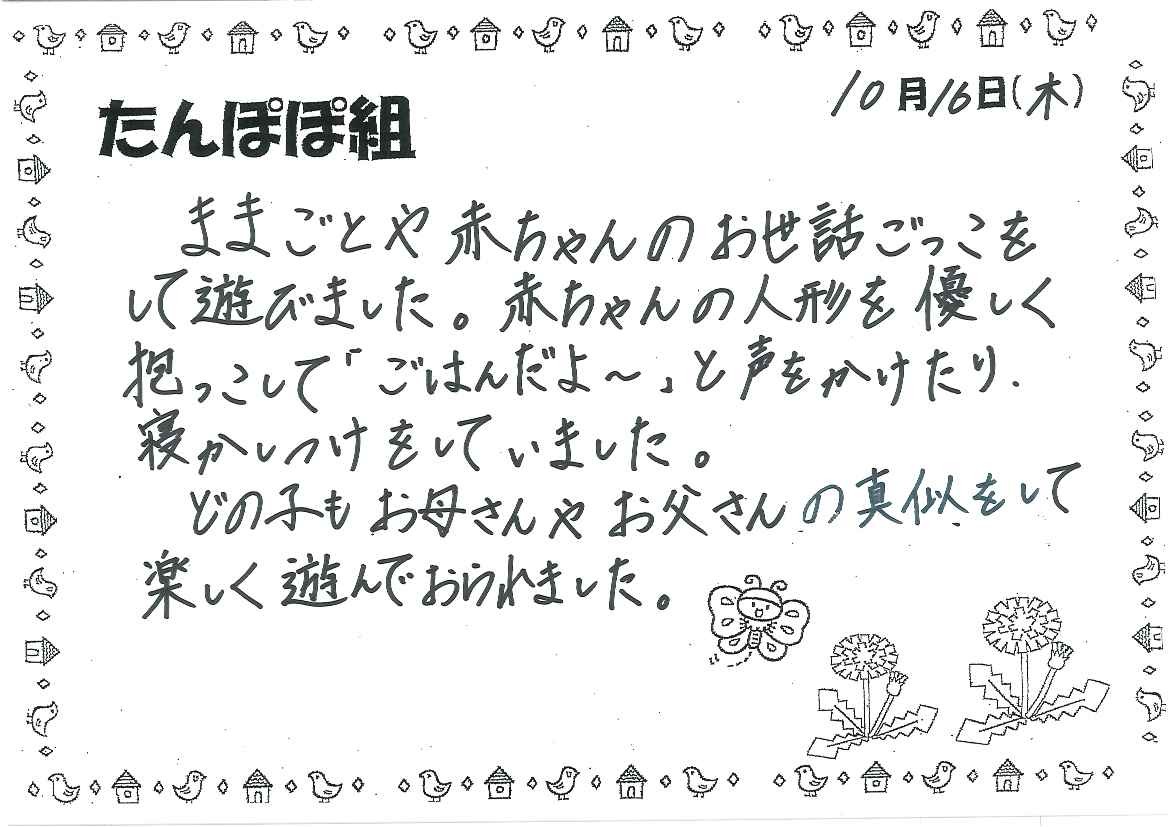 10月16日(木)
たんぽぽ組
ままごとや赤ちゃんのお世話ごっこを
して遊びました。赤ちゃんの人形を優しく
抱っこして「ごはんだよ〜」と声をかけたり、
寝かしつけをしていました。
どの子もお母さんやお父さんの真似をして
楽しく遊んでおられました。